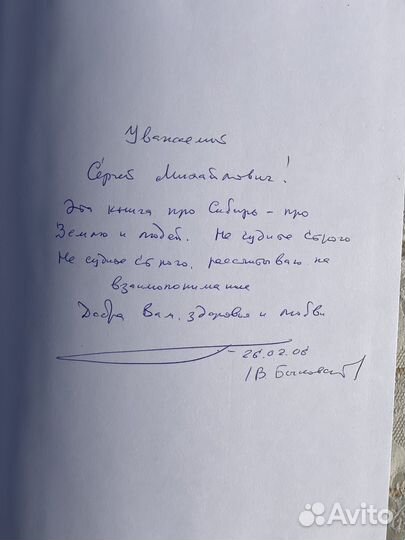 Уважаемый
Сергей Михайлович!
Эта книга про Сибирь – про
Землю и людей. Не судите строго
Не судите строго, рассчитываю на
взаимопонимание
Добра Вам, здоровья и любви
– 26.02.06
/В.
Avito